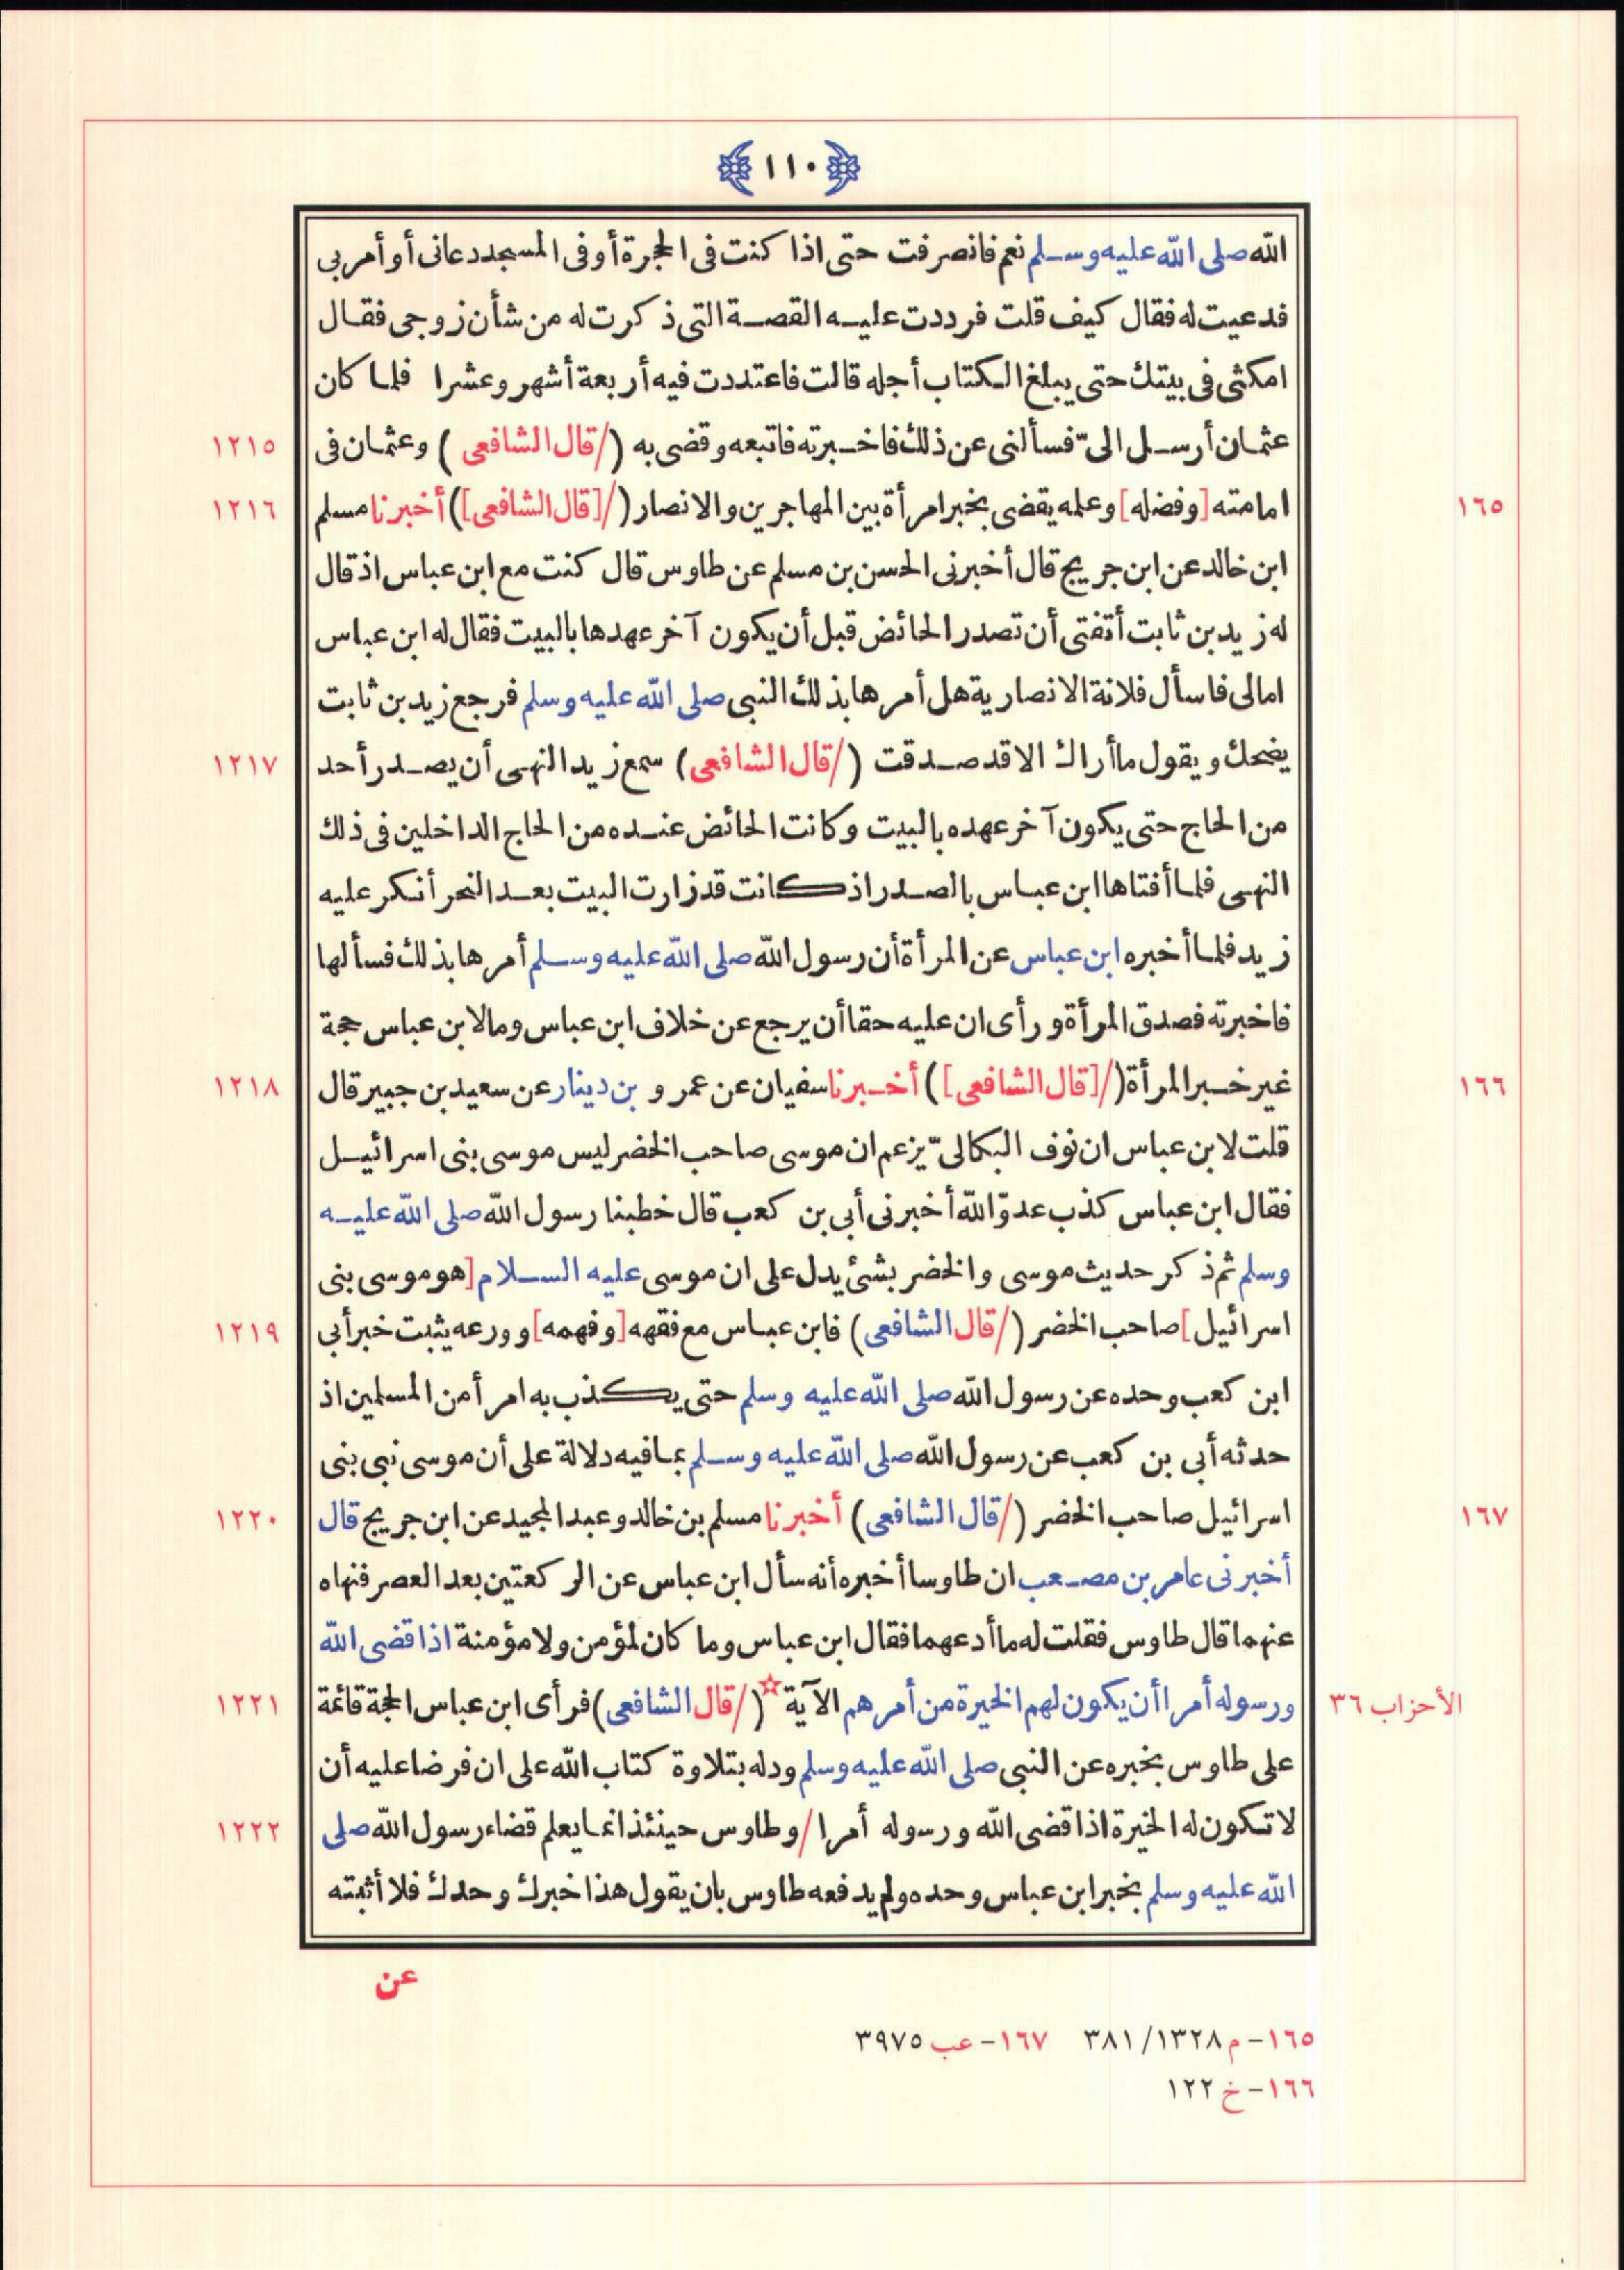 ١١٠
الله صلى الله عليه وسلم نعم فانصرفت حتى اذا كنت فى الحجرة أو فى المسجد دعانى أو أمر بى
فدعيت له فقال كيف قلت فرددت عليه القصة التى ذكرت له من شأن زوجى فقال
امكثى فى بيتك حتى يبلغ الكتاب أجله قالت فاعتددت فيه أربعة أشهر وعشرا فلما كان
عثمان أرسل الىّ فسألنى عن ذلك فاخبرته فاتبعه وقضى به (/قال الشافعى ) وعثمان فى ١٢١٥
١٦٥ امامته [وفضله] وعلمه يقضى بخبر امرأة بين المهاجرين والانصار (/[قال الشافعى]) أخبرنا مسلم ١٢١٦
ابن خالد عن ابن جريج قال أخبرنى الحسن بن مسلم عن طاوس قال كنت مع ابن عباس اذ قال
له زيد بن ثابت أتفتى أن تصدر الحائض قبل أن يكون آخر عهدها بالبيت فقال له ابن عباس
امالى فاسأل فلانة الانصارية هل أمرها بذلك النبى صلى الله عليه وسلم فرجع زيد بن ثابت
يضحك ويقول ماأراك الا قد صدقت (/قال الشافعى) سمع زيد النهى أن يصدر أحد ١٢١٧
من الحاج حتى يكون آخر عهده بالبيت وكانت الحائض عنده من الحاج الداخلين فى ذلك
النهى فلما أفتاها ابن عباس بالصدر اذ كانت قد زارت البيت بعد النحر أنكر عليه
زيد فلما أخبره ابن عباس عن المرأة أن رسول الله صلى الله عليه وسلم أمرها بذلك فسألها
فاخبرته فصدق المرأة ورأى ان عليه حقا أن يرجع عن خلاف ابن عباس وما لابن عباس حجة
١٦٦ غير خبر المرأة (/[قال الشافعى]) أخبرنا سفيان عن عمرو بن دينار عن سعيد بن جبير قال ١٢١٨
قلت لابن عباس ان نوف البكالىّ يزعم ان موسى صاحب الخضر ليس موسى بنى اسرائيل
فقال ابن عباس كذب عدوّ الله أخبرنى أبى بن كعب قال خطبنا رسول الله صلى الله عليه
وسلم ثم ذكر حديث موسى والخضر بشئ يدل على ان موسى عليه السلام [هو موسى بنى
اسرائيل] صاحب الخضر (/قال الشافعى) فابن عباس مع فقهه [وفهمه] وورعه يثبت خبر أبى ١٢١٩
ابن كعب وحده عن رسول الله صلى الله عليه وسلم حتى يكذب به امرأ من المسلمين اذ
حدثه أبى بن كعب عن رسول الله صلى الله عليه وسلم بما فيه دلالة على أن موسى نبى بنى
١٦٧ اسرائيل صاحب الخضر (/قال الشافعى) أخبرنا مسلم بن خالد وعبد المجيد عن ابن جريج قال ١٢٢٠
أخبرنى عامر بن مصعب ان طاوسا أخبره أنه سأل ابن عباس عن الركعتين بعد العصر فنهاه
عنهما قال طاوس فقلت له ماأدعهما فقال ابن عباس وما كان لمؤمن ولا مؤمنة اذا قضى الله
الأحزاب ٣٦ ورسوله أمرا أن يكون لهم الخيرة من أمرهم الآية ☆ (/قال الشافعى) فرأى ابن عباس الحجة قائمة ١٢٢١
على طاوس بخبره عن النبى صلى الله عليه وسلم ودله بتلاوة كتاب الله على ان فرضا عليه أن
لا تكون له الخيرة اذا قضى الله ورسوله أمرا /وطاوس حينئذ انما يعلم قضاء رسول الله صلى ١٢٢٢
الله عليه وسلم بخبر ابن عباس وحده ولم يدفعه طاوس بان يقول هذا خبرك وحدك فلا أثبته
عن
١٦٥- م ١٣٢٨/ ٣٨١ ١٦٧- عب ٣٩٧٥
١٦٦- خ ١٢٢